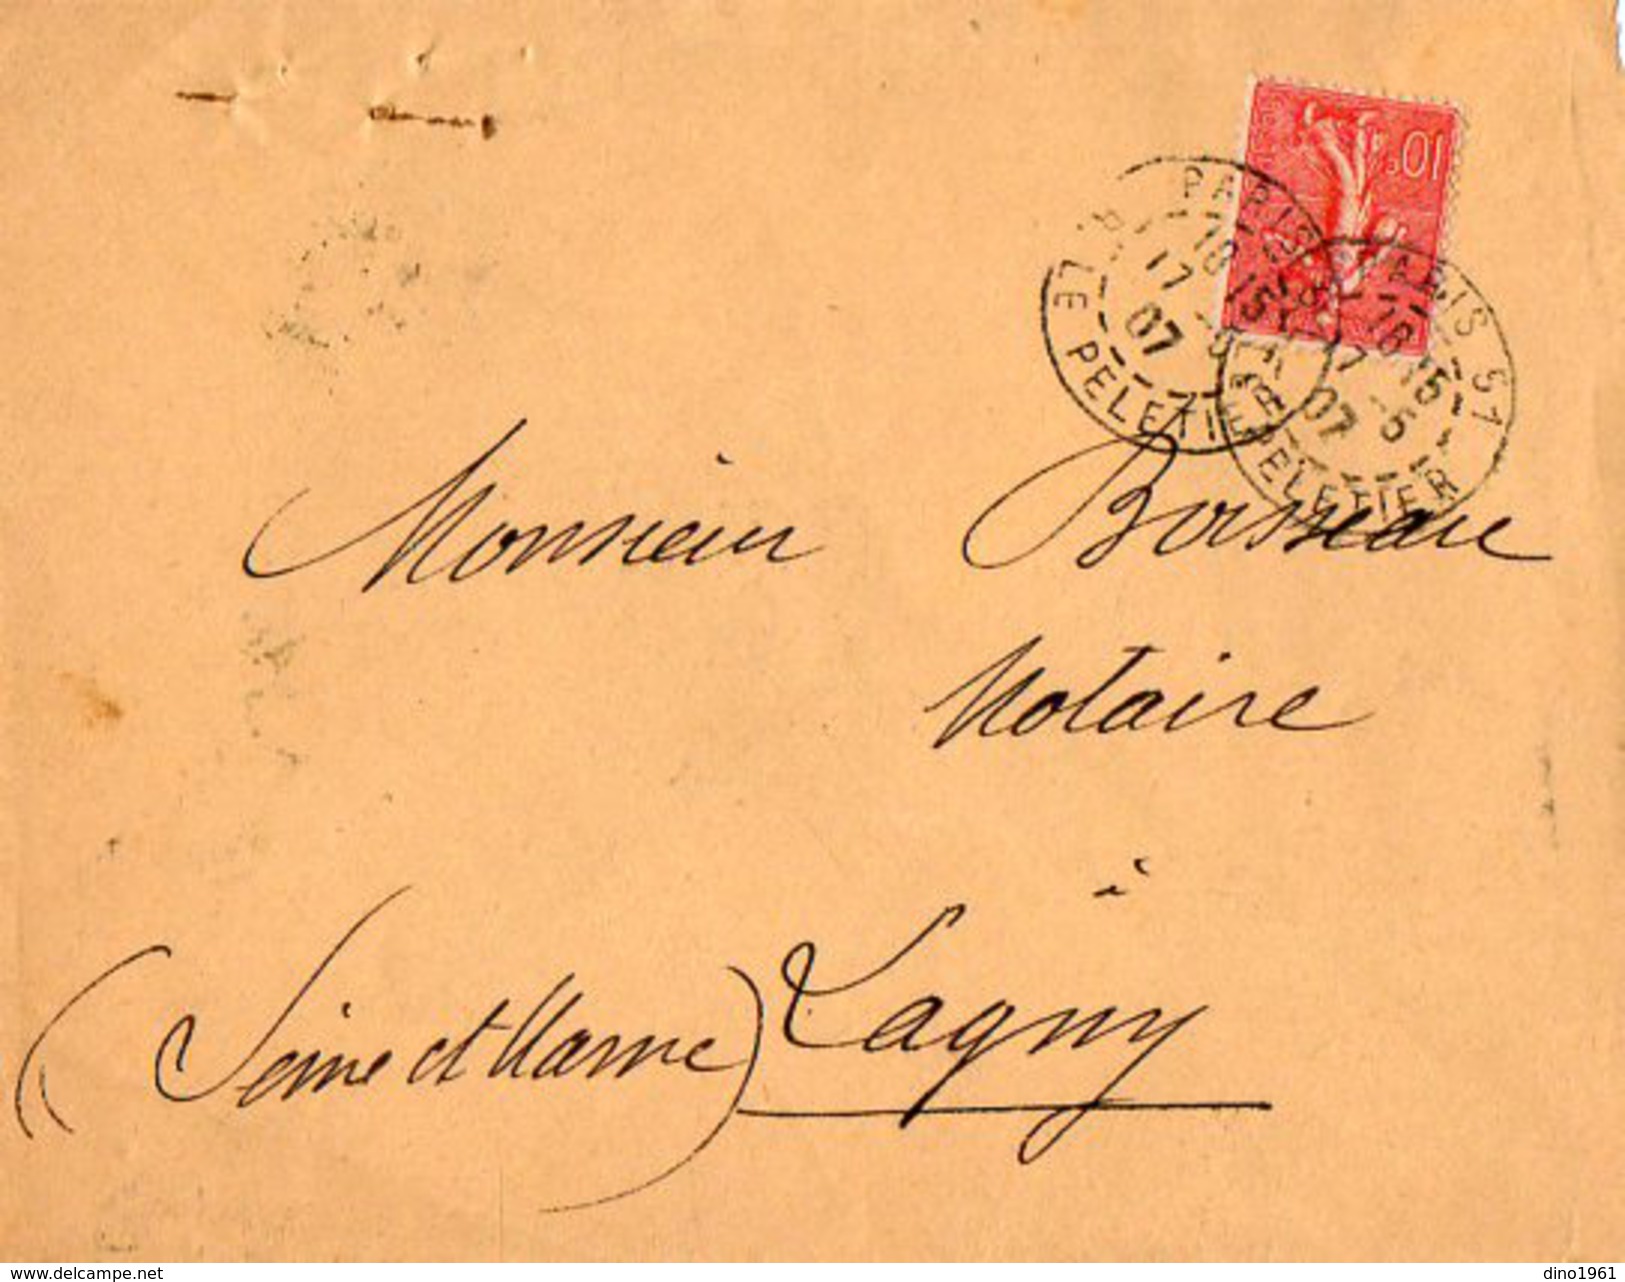 10c
PARIS 51
18 15
17 -5
07
R. LE PELETIER
PARIS 51
18 15
17 -5
07
R. LE PELETIER
Monsieur Boisseau
Notaire
à
Lagny
(Seine et Marne)
www.delcampe.net
dino1961